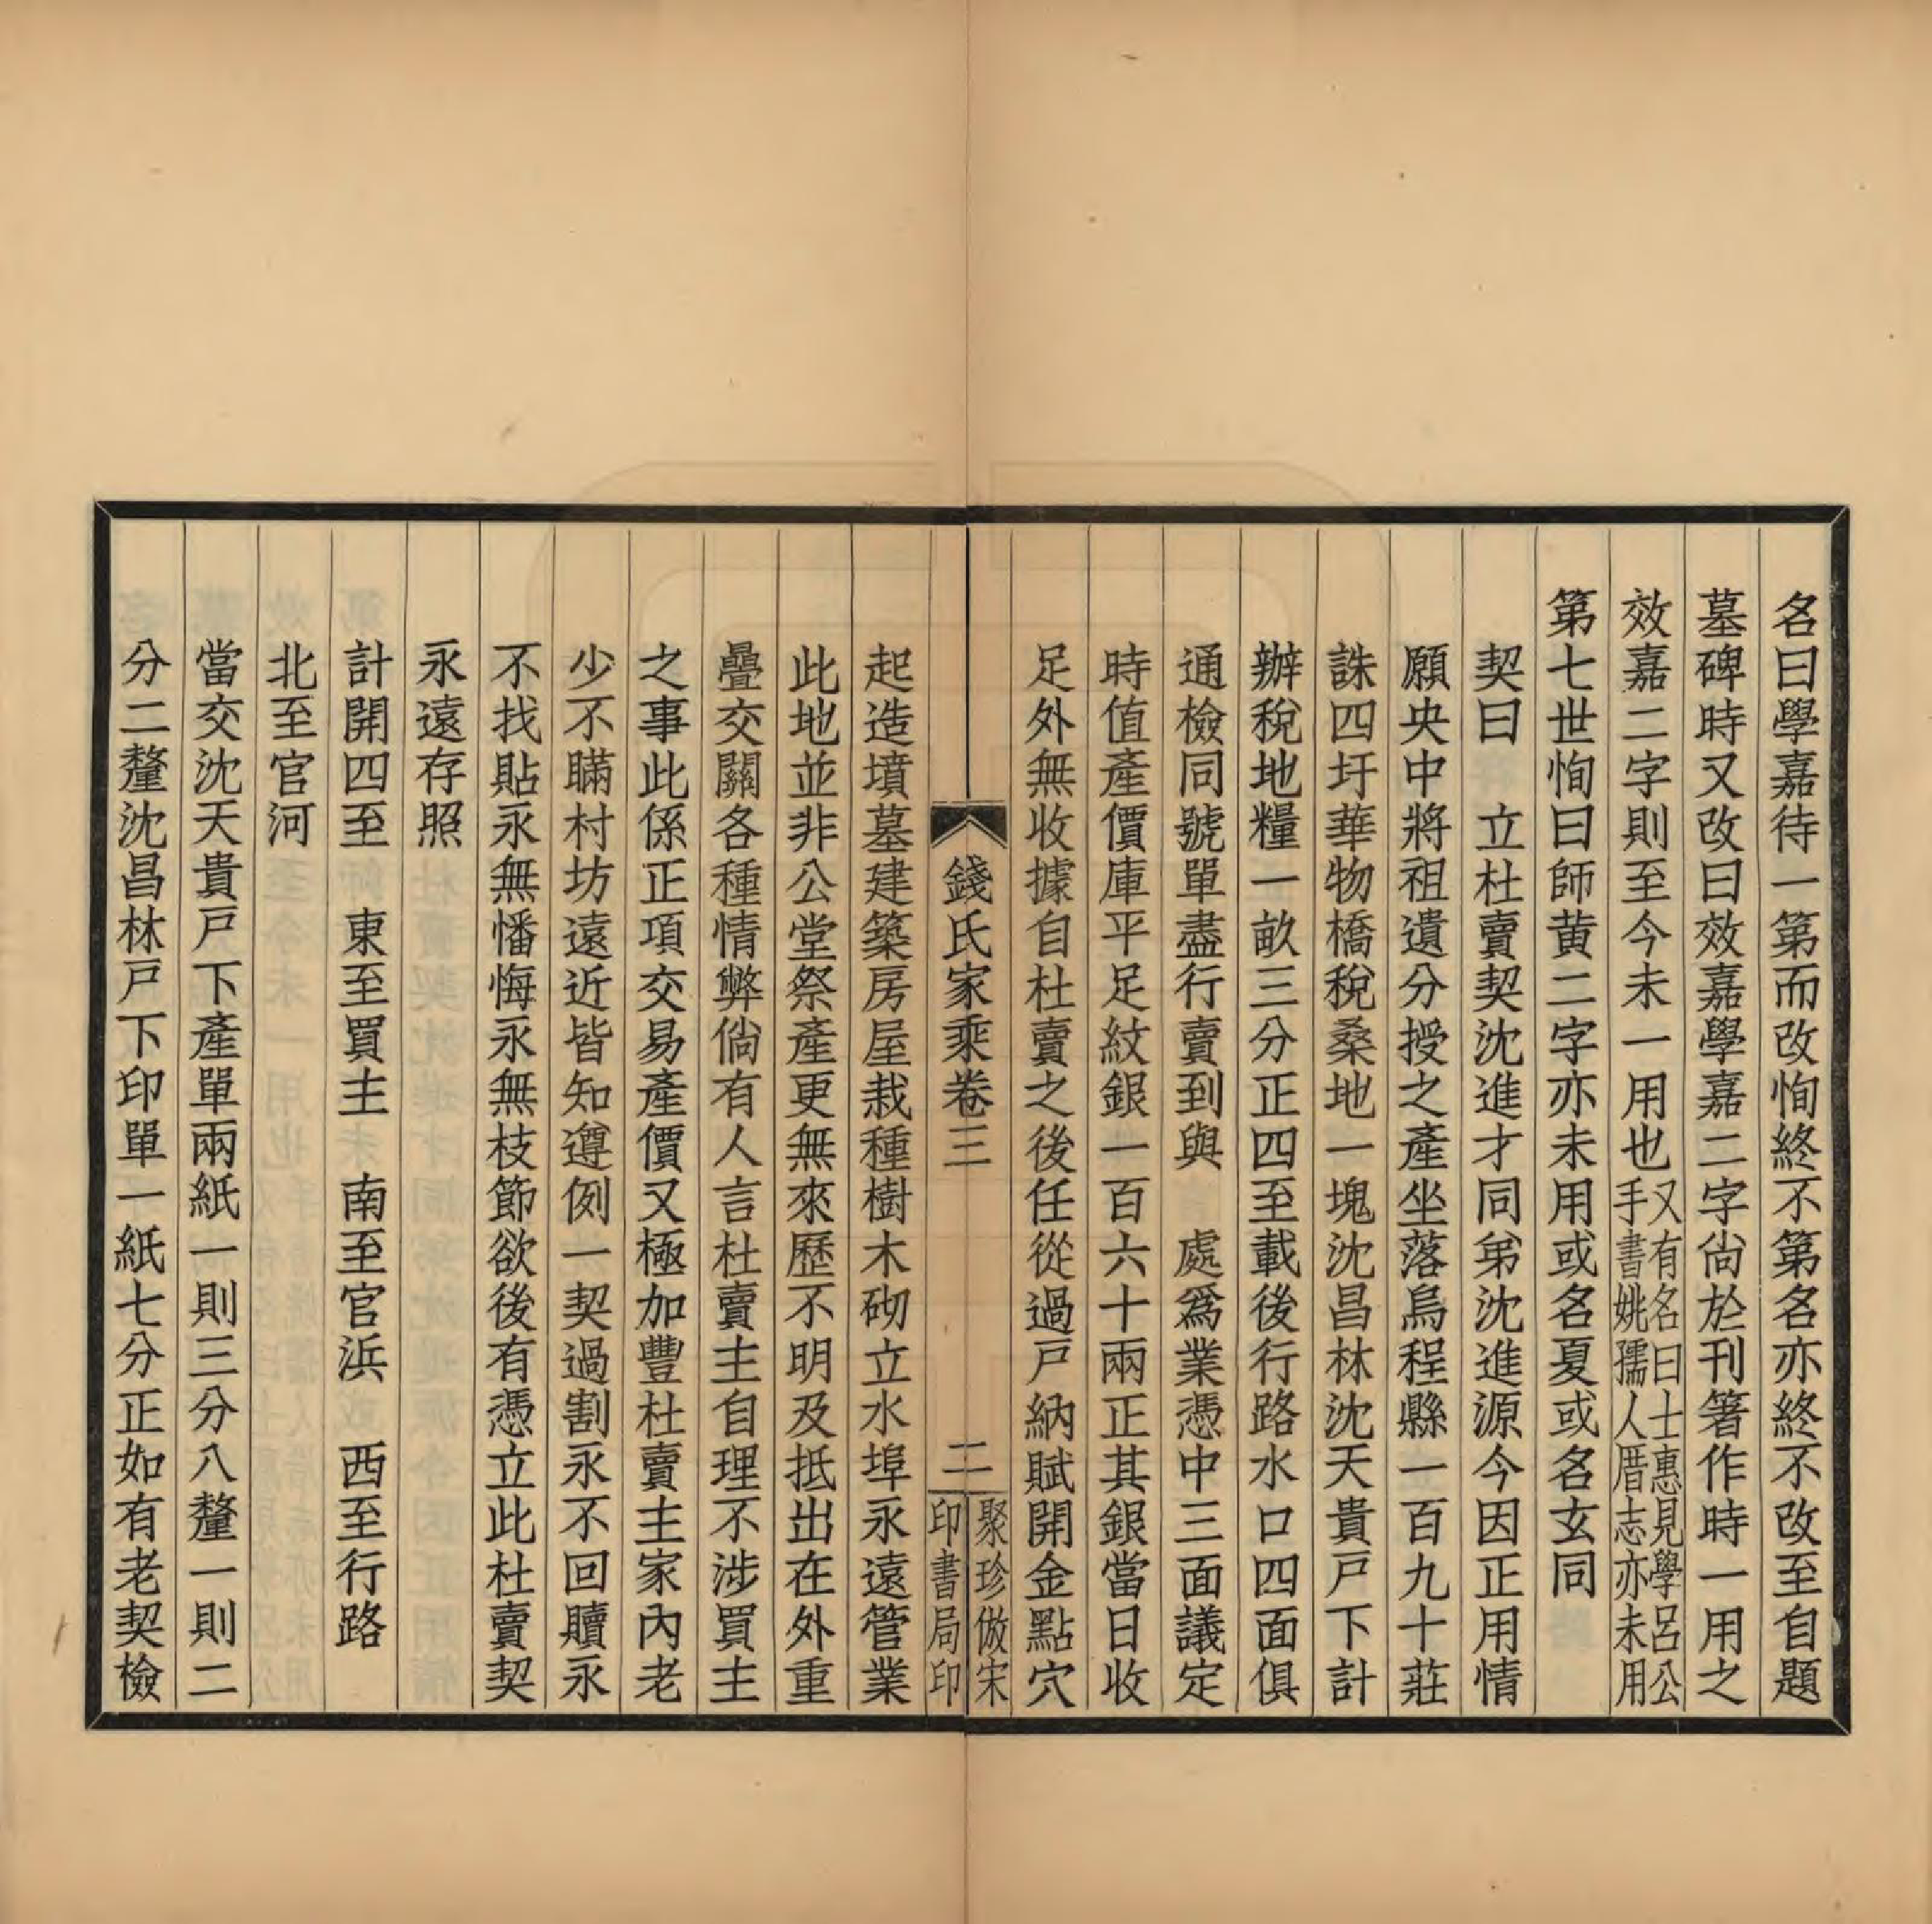 名曰學嘉待一第而改恂終不第名亦終不改至自題
墓碑時又改曰效嘉學嘉二字尙於刊箸作時一用之
效嘉二字則至今未一用也又有名曰士惠見學呂公手書姚孺人厝志亦未用
第七世恂曰師黄二字亦未用或名夏或名玄同
契曰 立杜賣契沈進才同弟沈進源今因正用情
願央中將祖遺分授之產坐落烏程縣一百九十莊
誅四圩華物橋稅桑地一塊沈昌林沈天貴戸下計
辦稅地糧一畝三分正四至載後行路水口四面俱
通檢同號單盡行賣到與 處爲業憑中三面議定
時值產價庫平足紋銀一百六十兩正其銀當日收
足外無收據自杜賣之後任從過戸納賦開金點穴
錢氏家乘卷三 二
聚珍倣宋
印書局印
起造墳墓建築房屋栽種樹木砌立水埠永遠管業
此地並非公堂祭產更無來歷不明及抵出在外重
疊交關各種情弊倘有人言杜賣主自理不涉買主
之事此係正項交易產價又極加豐杜賣主家內老
少不瞞村坊遠近皆知遵例一契過割永不回贖永
不找貼永無懺悔永無枝節欲後有憑立此杜賣契
永遠存照
計開四至 東至買主 南至官浜 西至行路
北至官河
當交沈天貴戸下產單兩紙一則三分八釐一則二
分二釐沈昌林戸下印單一紙七分正如有老契檢